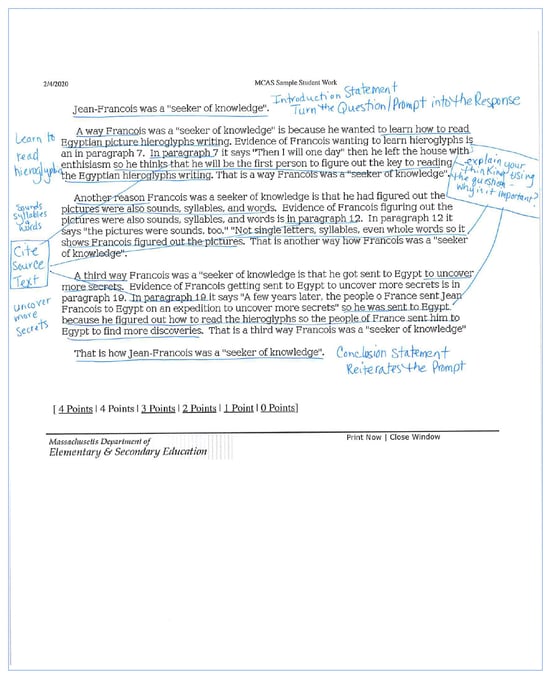 2/4/2020 MCAS Sample Student Work
Introduction Statement
Jean-Francois was a "seeker of knowledge". Turn the Question/Prompt into the Response
A way Francois was a "seeker of knowledge" is because he wanted to learn how to read
Egyptian picture hieroglyphs writing. Evidence of Francois wanting to learn hieroglyphs is
an in paragraph 7. In paragraph 7 it says "Then I will one day" then he left the house with
enthisiasm so he thinks that he will be the first person to figure out the key to reading
the Egyptian hieroglyphs writing. That is a way Francois was a "seeker of knowledge".
Learn to
read
hieroglyphs
explain your
"thinking" using
the question -
Why is it important?
Another reason Francois was a "seeker of knowledge is that he had figured out the
pictures were also sounds, syllables, and words. Evidence of Francois figuring out the
pictures were also sounds, syllables, and words is in paragraph 12. In paragraph 12 it
says "the pictures were sounds, too." "Not single letters, syllables, even whole words so it
shows Francois figured out the pictures. That is another way how Francois was a "seeker
of knowledge".
Sounds
Syllables
words
Cite
Source
Text
A third way Francois was a "seeker of knowledge is that he got sent to Egypt to uncover
more secrets. Evidence of Francois getting sent to Egypt to uncover more secrets is in
paragraph 19. In paragraph 19 it says "A few years later, the people o France sent Jean
Francois to Egypt on an expedition to uncover more secrets" so he was sent to Egypt
because he figured out how to read the hieroglyphs so the people of France sent him to
Egypt to find more discoveries. That is a third way Francois was a "seeker of knowledge"
Uncover
more
Secrets
That is how Jean-Francois was a "seeker of knowledge". Conclusion Statement
Reiterates the Prompt
[ 4 Points | 4 Points | 3 Points | 2 Points | 1 Point | 0 Points]
Massachusetts Department of
Elementary & Secondary Education
Print Now | Close Window